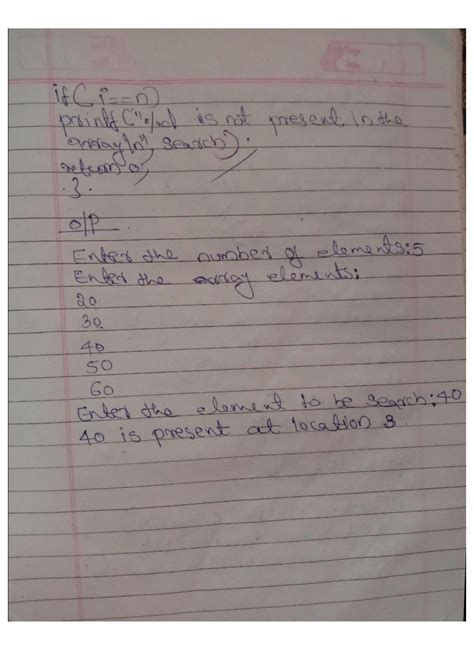 if( i==n)
printf("%d is not present in the
array\n", search);
return 0;
}
O/P
Enter the number of elements:5
Enter the array elements:
20
30
40
50
60
Enter the element to be search:40
40 is present at location 3.